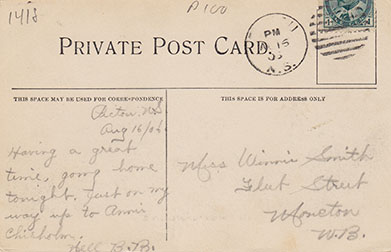 1418
P100
PM
16
N.S.
PRIVATE POST CARD
THIS SPACE MAY BE USED FOR CORRESPONDENCE
THIS SPACE IS FOR ADDRESS ONLY
Pictou, NS
Aug 16/06
Having a great
time, going home
tonight. Just on my
way up to Annie
Chisholm.
Will B.B.
Miss Winnie Smith
Flut Street
Moncton
N.B.